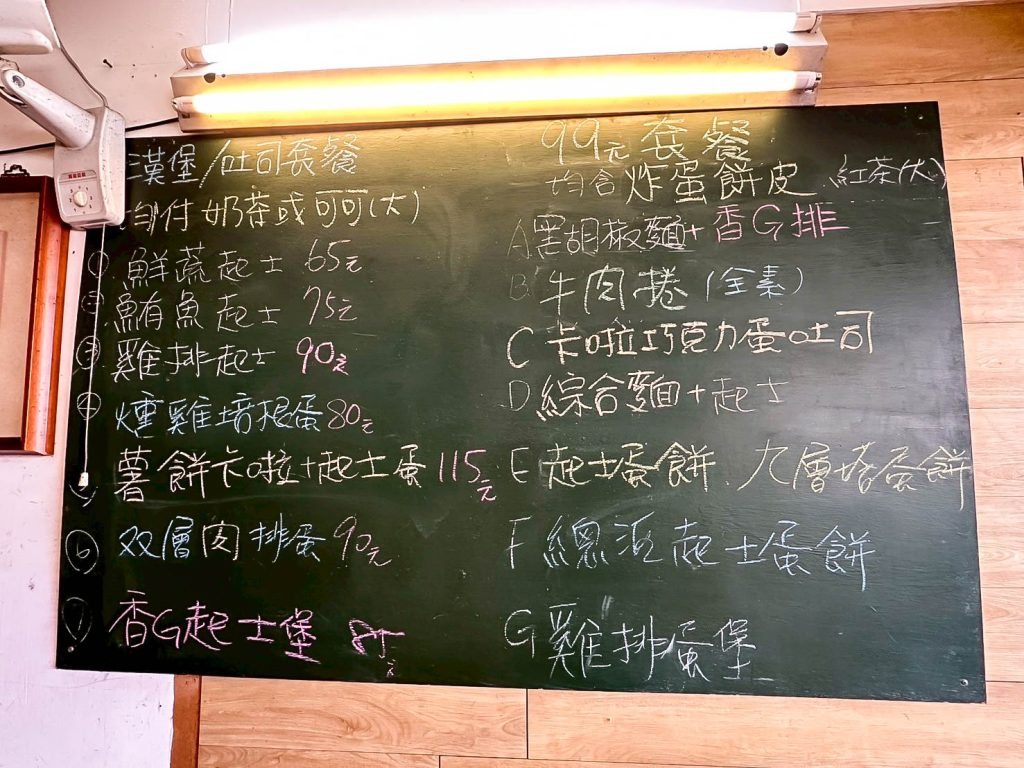 漢堡/吐司套餐
均付 奶茶或可可(大)
① 鮮蔬起士 65元
② 鮪魚起士 75元
③ 雞排起士 90元
④ 燻雞培根蛋 80元
薯餅卡啦+起士蛋 115元
⑥ 双層肉排蛋 90元
⑦ 香G起士堡 85元
99元套餐
均含 炸蛋餅皮、紅茶(大)
A 黑胡椒麵+香G排
B 牛肉捲(全素)
C 卡啦巧克力蛋吐司
D 綜合麵+起士
E 起士蛋餅、九層塔蛋餅
F 總派起士蛋餅
G 雞排蛋堡